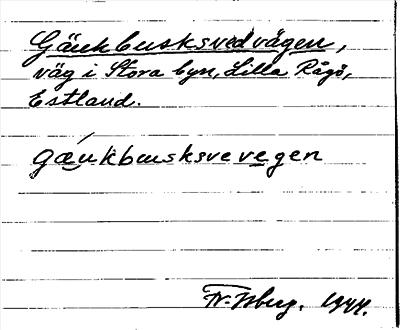 Gäukbusksvedvägen,
väg i Stora byn, Lilla Rågö,
Estland.
gäukbusksvevegen
Fr. Isberg. 1944.